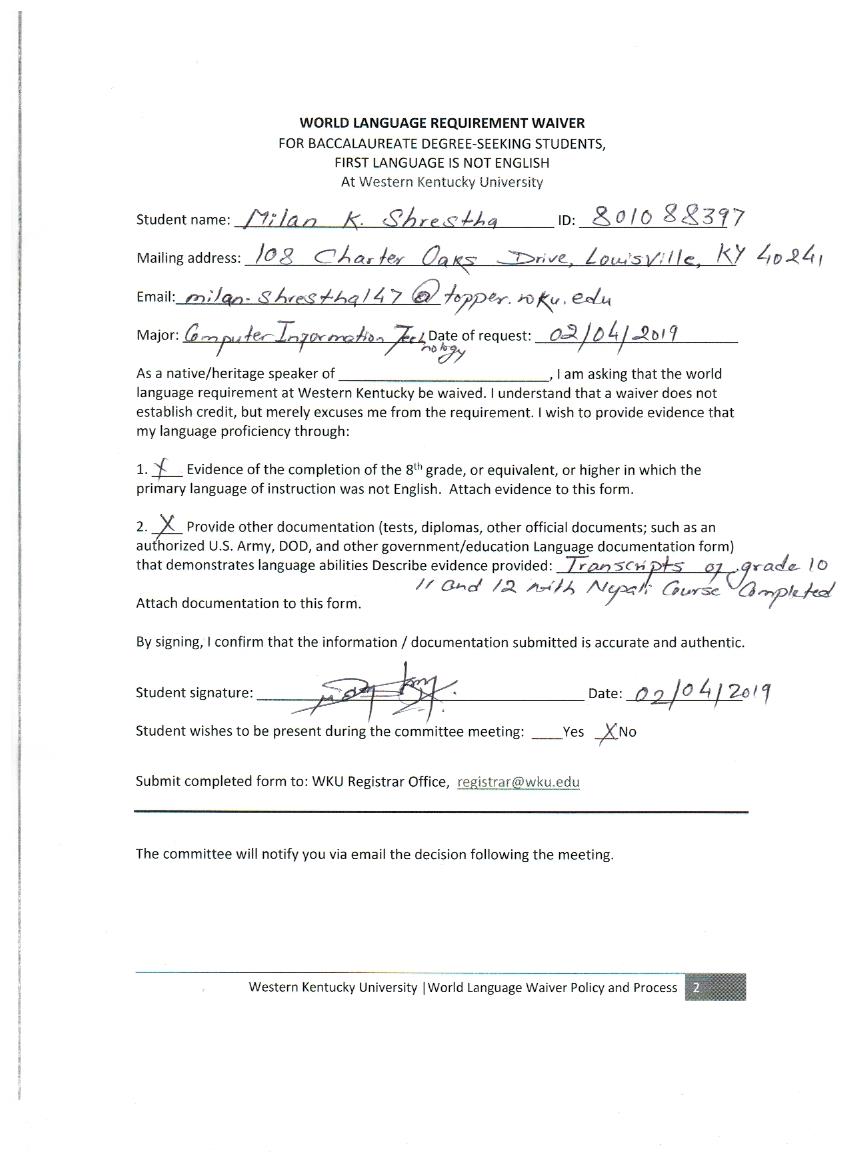 WORLD LANGUAGE REQUIREMENT WAIVER
FOR BACCALAUREATE DEGREE-SEEKING STUDENTS,
FIRST LANGUAGE IS NOT ENGLISH
At Western Kentucky University
Student name: Milan K. Shrestha ID: 801088397
Mailing address: 108 Charter Oaks Drive, Louisville, KY 40241
Email: milan.shrestha147@topper.wku.edu
Major: Computer Information Technology Date of request: 02/04/2019
As a native/heritage speaker of ____, I am asking that the world
language requirement at Western Kentucky be waived. I understand that a waiver does not
establish credit, but merely excuses me from the requirement. I wish to provide evidence that
my language proficiency through:
1. X Evidence of the completion of the 8th grade, or equivalent, or higher in which the
primary language of instruction was not English. Attach evidence to this form.
2. X Provide other documentation (tests, diplomas, other official documents; such as an
authorized U.S. Army, DOD, and other government/education Language documentation form)
that demonstrates language abilities Describe evidence provided: Transcripts of grade 10
11 and 12 with Nepali Course Completed
Attach documentation to this form.
By signing, I confirm that the information / documentation submitted is accurate and authentic.
Student signature: Date: 02/04/2019
Student wishes to be present during the committee meeting: ___Yes X No
Submit completed form to: WKU Registrar Office, registrar@wku.edu
The committee will notify you via email the decision following the meeting.
Western Kentucky University |World Language Waiver Policy and Process 2